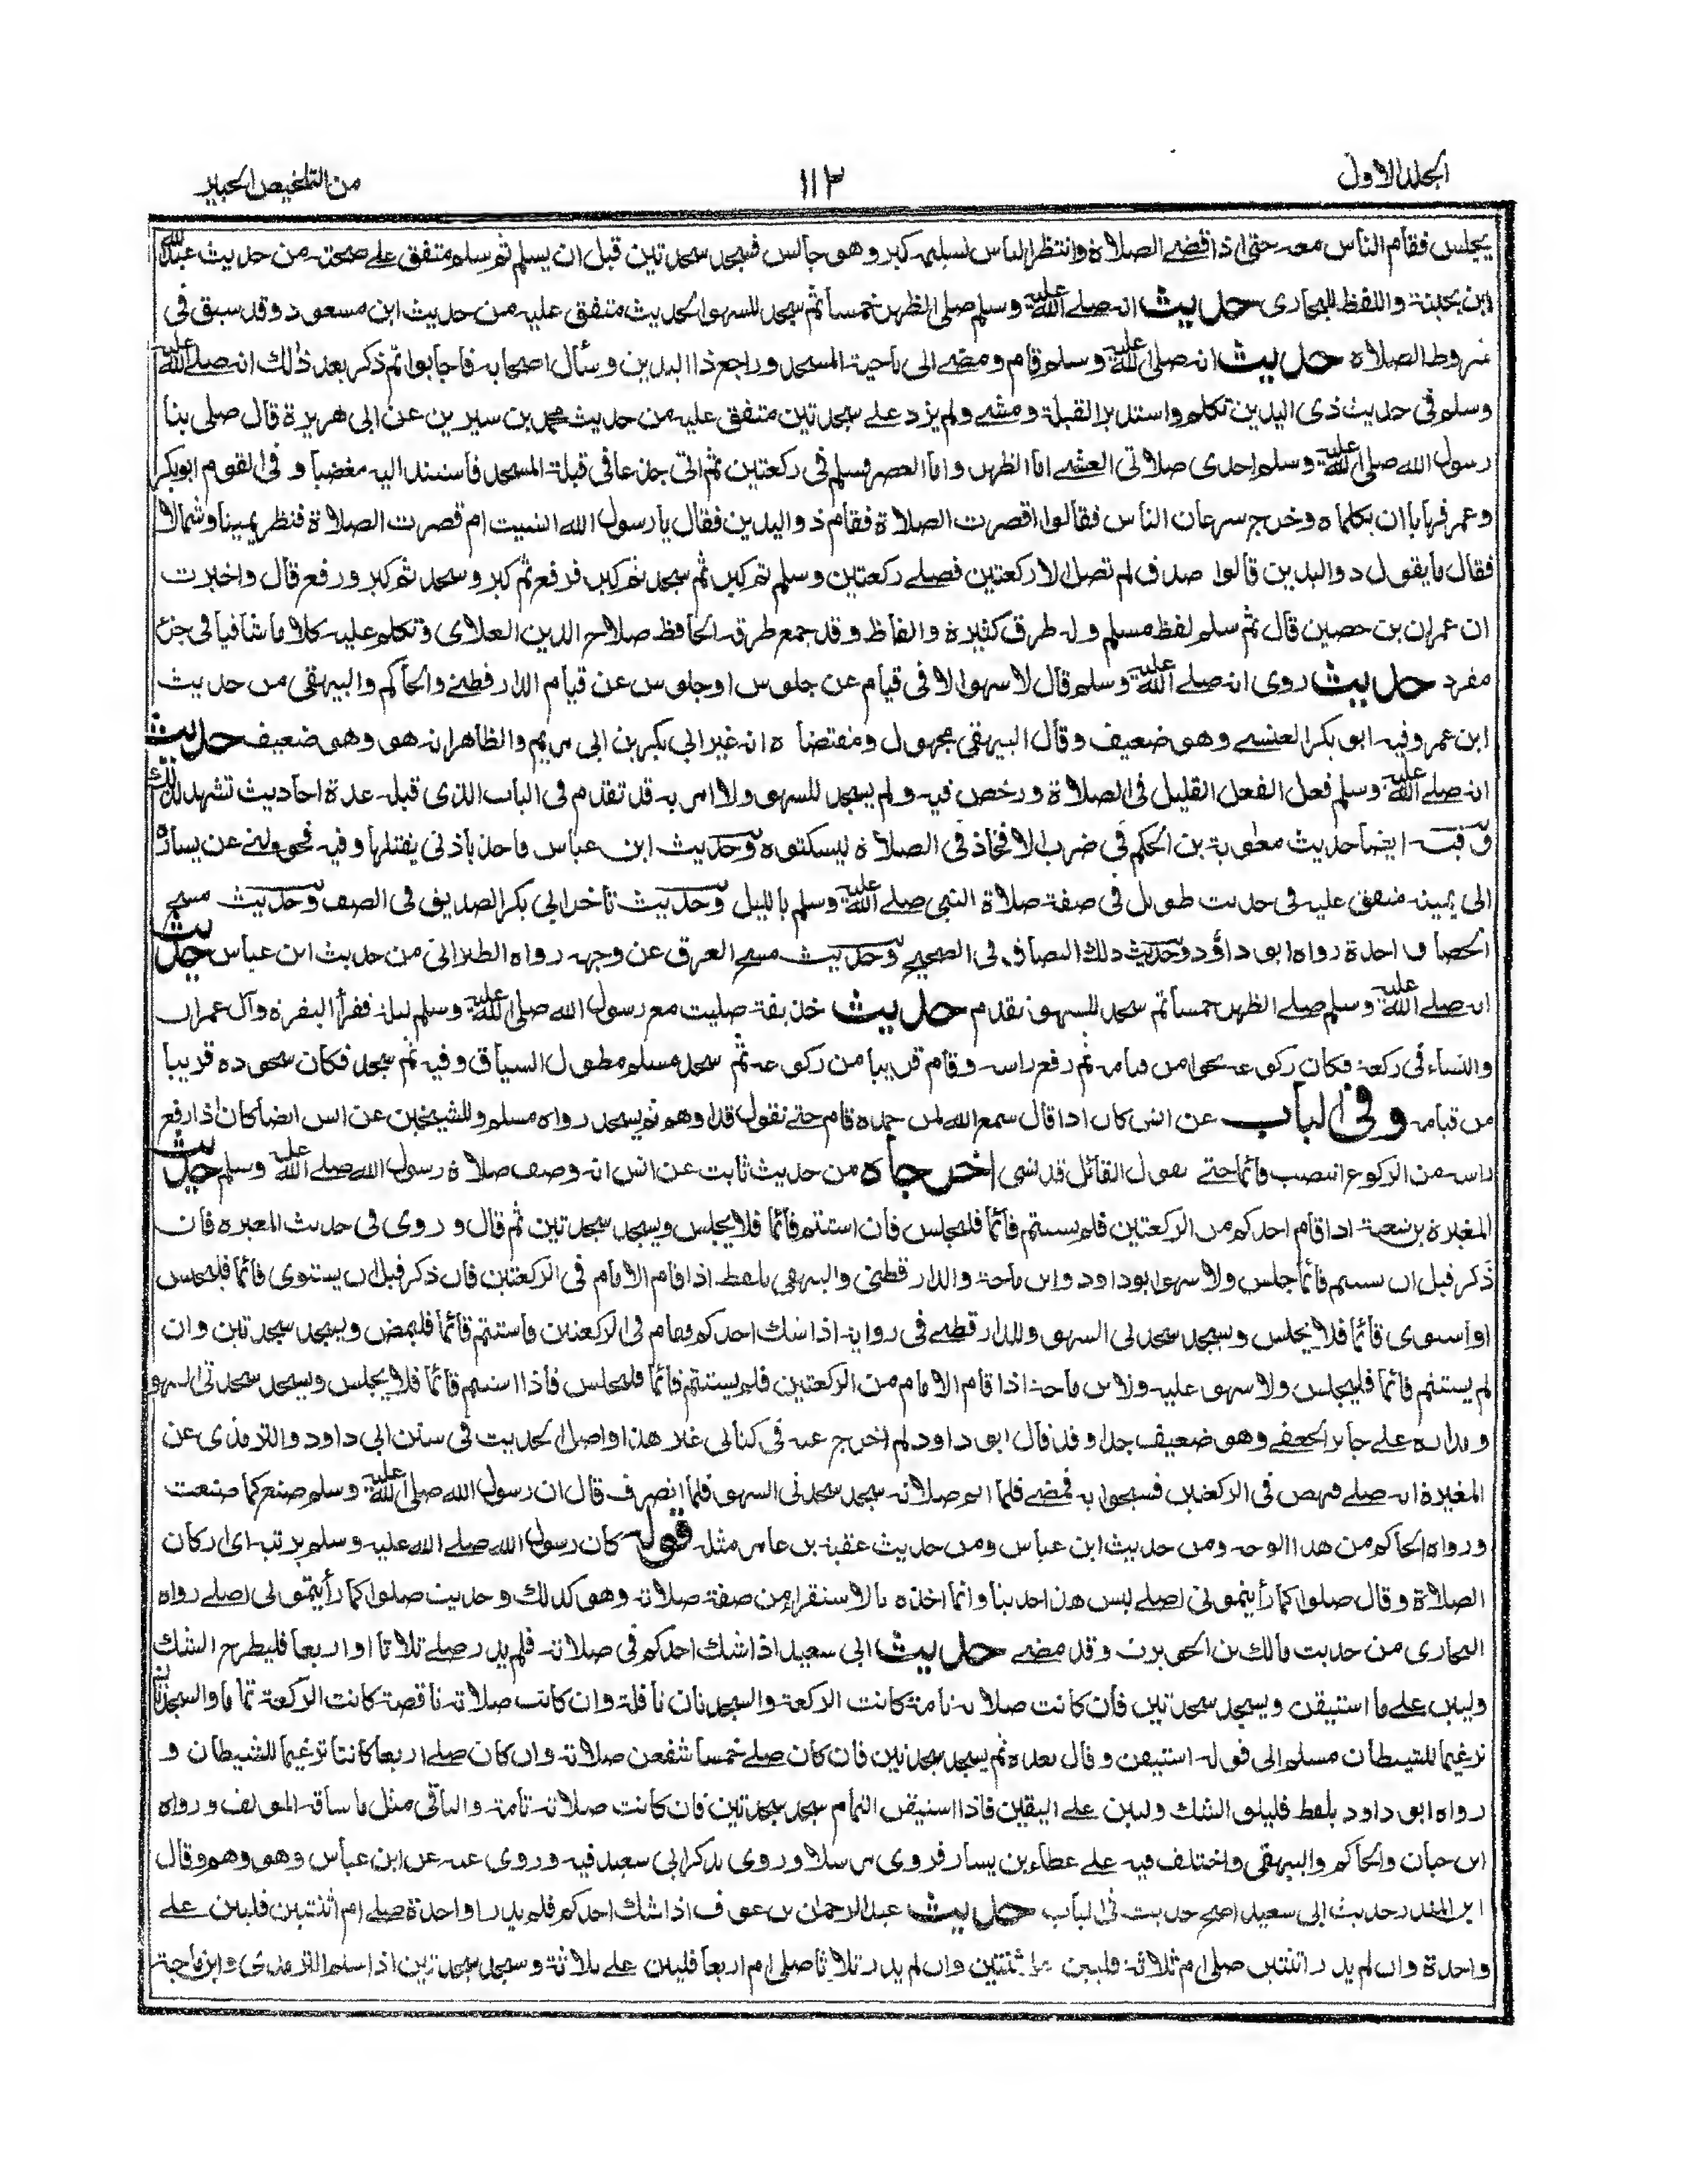 الجلد الاول
١١٣
من التلخيص الحبير
يجلس فقام الناس معه حتى اذا قضى الصلاة وانتظر الناس تسليمه كبر وهو جالس فسجد سجدتين قبل ان يسلم ثم سلم متفق على صحته من حديث عبدالله
ابن بحينة واللفظ للبخارى حديث انه صلى الله عليه وسلم صلى الظهر خمسا ثم سجد للسهو الحديث متفق عليه من حديث ابن مسعود وقد سبق فى
شروط الصلاة حديث انه صلى الله عليه وسلم قام ومضى الى ناحية المسجد وراجع ذا اليدين وسأل اصحابه فاجابوا ثم ذكر بعد ذلك انه صلى الله عليه
وسلم فى حديث ذى اليدين تكلم واستدبر القبلة ومشى ولم يزد على سجدتين متفق عليه من حديث محمد بن سيرين عن ابى هريرة قال صلى بنا
رسول الله صلى الله عليه وسلم احدى صلاتى العشى اما الظهر واما العصر فسلم فى ركعتين ثم اتى جذعا فى قبلة المسجد فاستند اليه مغضبا وفى القوم ابوبكر
وعمر فهابا ان يكلماه وخرج سرعان الناس فقالوا اقصرت الصلاة فقام ذو اليدين فقال يا رسول الله انسيت ام قصرت الصلاة فنظر يمينا وشمالا
فقال ما يقول ذو اليدين قالوا صدق لم تصل الا ركعتين فصلى ركعتين وسلم ثم كبر ثم سجد ثم كبر فرفع ثم كبر وسجد ثم كبر ورفع قال واخبرت
ان عمران بن حصين قال ثم سلم لفظ مسلم وله طرق كثيرة والفاظ وقد جمع طرقه الحافظ صلاح الدين العلاى وتكلم عليه كلاما شافيا فى جزء
مفرد حديث روى انه صلى الله عليه وسلم قال لا سهو الا فى قيام عن جلوس او جلوس عن قيام الدارقطنى والحاكم والبيهقى من حديث
ابن عمر وفيه ابو بكر العنسى وهو ضعيف وقال البيهقى مجهول ومقتضاه انه غير ابى بكر بن ابى مريم والظاهر انه هو وهو ضعيف حديث
انه صلى الله عليه وسلم فعل الفعل القليل فى الصلاة ورخص فيه ولم يسجد للسهو ولا امر به قد تقدم فى الباب الذى قبله عدة احاديث تشهد لذلك
وفيه ايضا حديث معاوية بن الحكم فى ضرب الافخاذ فى الصلاة ليسكتوه وحديث ابن عباس واخذ باذنى يفتلها وفيه فحولنى عن يساره
الى يمينه متفق عليه فى حديث طويل فى صفة صلاة النبى صلى الله عليه وسلم بالليل وحديث تاخر ابى بكر الصديق فى الصف وحديث مسح
الحصا واحدة رواه ابو داؤد وحديث دلك البصاق فى الصحيح وحديث مسح العرق عن وجهه رواه الطبرانى من حديث ابن عباس حديث
انه صلى الله عليه وسلم صلى الظهر خمسا ثم سجد للسهو تقدم حديث حذيفة صليت مع رسول الله صلى الله عليه وسلم ليلة فقرأ البقرة وآل عمران
والنساء فى ركعة فكان ركوعه نحوا من قيامه ثم رفع راسه وقام قريبا من ركوعه ثم سجد مسلم مطول السياق وفيه ثم سجد فكان سجوده قريبا
من قيامه وفى الباب عن انس كان اذا قال سمع الله لمن حمده قام حتى نقول قد اوهم ثم يسجد رواه مسلم وللشيخين عن انس ايضا كان اذا رفع
راسه من الركوع انتصب قائما حتى يقول القائل قد نسى اخرجاه من حديث ثابت عن انس انه وصف صلاة رسول الله صلى الله عليه وسلم حديث
المغيرة بن شعبة اذا قام احدكم من الركعتين فلم يستتم قائما فليجلس فان استتم قائما فلا يجلس ويسجد سجدتين ثم قال وروى فى حديث المغيرة فان
ذكر قبل ان يستتم قائما جلس ولا سهو ابوداود وابن ماجة والدارقطنى والبيهقى بلفظ اذا قام الامام فى الركعتين فان ذكر قبل ان يستوى قائما فليجلس
او استوى قائما فلا يجلس ويسجد سجدتى السهو وللدارقطنى فى رواية اذا شك احدكم فقام فى الركعتين واستتم قائما فليمض ويسجد سجدتين وان
لم يستتم قائما فليجلس ولا سهو عليه ولابن ماجة اذا قام الامام من الركعتين فلم يستتم قائما فليجلس فاذا استتم قائما فلا يجلس ويسجد سجدتى السهو
ومداره على جابر الجعفى وهو ضعيف جدا وقد قال ابو داود لم اخرج عنه فى كتابى غير هذا واصل الحديث فى سنن ابى داود والترمذى عن
المغيرة انه صلى فنهض فى الركعتين فسبحوا به فمضى فلما اتم صلاته سجد سجدتى السهو فلما انصرف قال ان رسول الله صلى الله عليه وسلم صنع كما صنعت
ورواه الحاكم من هذا الوجه ومن حديث ابن عباس ومن حديث عقبة بن عامر مثله قوله كان رسول الله صلى الله عليه وسلم يرتب اى اركان
الصلاة وقال صلوا كما رأيتمونى اصلى ليس هذا حديثا وانما اخذه بالاستقراء من صفة صلاته وهو كذلك وحديث صلوا كما رأيتمونى اصلى رواه
البخارى من حديث مالك بن الحويرث وقد مضى حديث ابى سعيد اذا شك احدكم فى صلاته فلم يدر صلى ثلاثا او اربعا فليطرح الشك
وليبن على ما استيقن ويسجد سجدتين فان كانت صلاته تامة كانت الركعة والسجدتان نافلة وان كانت صلاته ناقصة كانت الركعة تماما والسجدتان
ترغيما للشيطان مسلم الى قوله استيقن وقال بعده ثم يسجد سجدتين فان كان صلى خمسا شفعن صلاته وان كان صلى اربعا كانتا ترغيما للشيطان و
رواه ابو داود بلفظ فليلق الشك وليبن على اليقين فاذا استيقن التمام سجد سجدتين فان كانت صلاته تامة والباقى مثل ما ساقه المولف ورواه
ابن حبان والحاكم والبيهقى واختلف فيه على عطاء بن يسار فروى مرسلا وروى بذكر ابى سعيد فيه وروى عنه عن ابن عباس وهو وهم وقال
ابن المنذر حديث ابى سعيد اصح حديث فى الباب حديث عبدالرحمان بن عوف اذا شك احدكم فلم يدر ا واحدة صلى ام اثنتين فليبن على
واحدة وان لم يدر اثنتين صلى ام ثلاثة فليبن على ثنتين وان لم يدر ثلاثا صلى ام اربعا فليبن على ثلاثة وسجد سجدتين اذا سلم الترمذى وابن ماجة